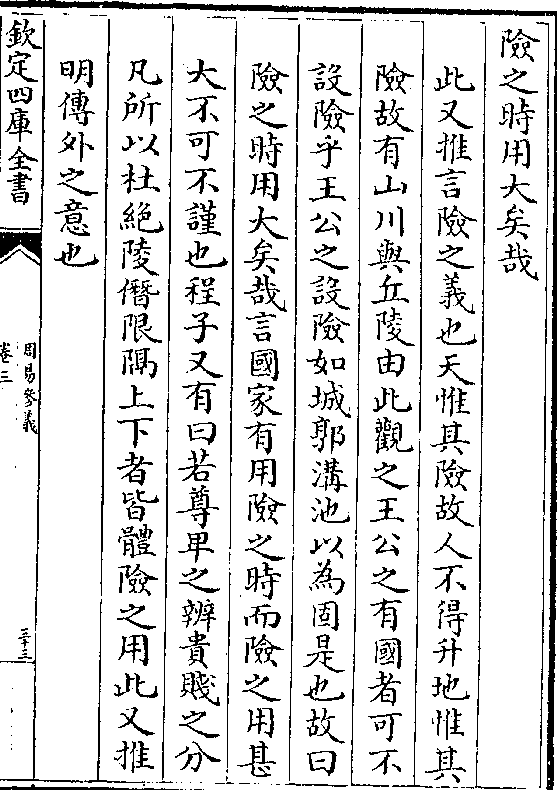 險之時用大矣哉
此又推言險之義也天惟其險故人不得升地惟其
險故有山川與丘陵由此觀之王公之有國者可不
設險乎王公之設險如城郭溝池以為固是也故曰
險之時用大矣哉言國家有用險之時而險之用甚
大不可不謹也程子又有曰若尊卑之辨貴賤之分
凡所以杜絶陵僭限隔上下者皆體險之用此又推
明傳外之意也
欽定四庫全書
周易參義
卷三
三十三